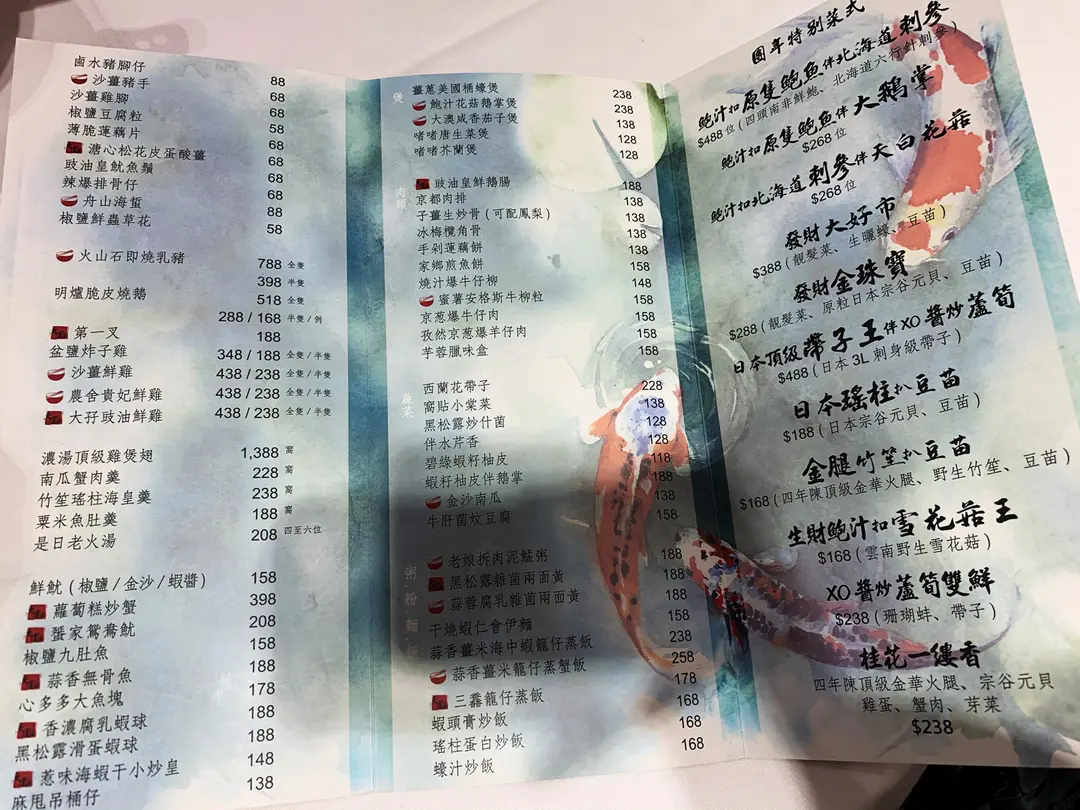 鹵水豬腳仔 88
沙薑豬手 68
沙薑雞腳 68
椒鹽豆腐粒 58
薄脆蓮藕片 68
溏心松花皮蛋酸薑 68
豉油皇魷魚鬚 68
辣爆排骨仔 68
舟山海蜇 88
椒鹽鮮蟲草花 58
火山石即燒乳豬 788 全隻
398 半隻
明爐脆皮燒鵝 518 全隻
288 / 168 半隻 / 例
第一叉 188
盆鹽炸子雞 348 / 188 全隻 / 半隻
沙薑鮮雞 438 / 238 全隻 / 半隻
農舍貴妃鮮雞 438 / 238 全隻 / 半隻
大孖豉油鮮雞 438 / 238 全隻 / 半隻
濃湯頂級雞煲翅 1,388 窩
南瓜蟹肉羹 228 窩
竹笙瑤柱海皇羹 238 窩
粟米魚肚羹 188 窩
是日老火湯 208 四至六位
鮮魷 ( 椒鹽 / 金沙 / 蝦醬 ) 158
蘿蔔糕炒蟹 398
蜑家鴛鴦魷 208
椒鹽九肚魚 158
蒜香無骨魚 188
心多多大魚塊 178
香濃腐乳蝦球 188
黑松露滑蛋蝦球 188
惹味海蝦干小炒皇 148
麻甩吊桶仔 138
煲
薑蔥美國桶蠔煲 238
鮑汁花菇鵝掌煲 238
大澳咸香茄子煲 138
啫啫唐生菜煲 128
啫啫芥蘭煲 128
肉類
豉油皇鮮鵝腸 188
京都肉排 138
子薑生炒骨 ( 可配鳳梨 ) 138
冰梅欖角骨 138
手剁蓮藕餅 138
家鄉煎魚餅 158
燒汁爆牛仔柳 148
蜜薯安格斯牛柳粒 158
京葱爆牛仔肉 158
孜然京葱爆羊仔肉 158
芋蓉臘味盒 158
蔬菜
西蘭花帶子 228
窩貼小棠菜 138
黑松露炒什菌 128
伴水芹香 128
碧綠蝦籽柚皮 118
蝦籽柚皮伴鵝掌 188
金沙南瓜 138
牛肝菌炆豆腐 158
粥 · 粉 · 麵 · 飯
老娘拆肉泥鯭粥 188
黑松露雜菌兩面黃 188
蒜蓉腐乳雜菌兩面黃 188
干燒蝦仁會伊麵 158
蒜香薑米海中蝦籠仔蒸飯 238
蒜香薑米籠仔蒸蟹飯 258
籠仔蒸飯 178
蝦頭膏炒飯 168
瑤柱蛋白炒飯 168
蠔汁炒飯 168
團年特別菜式
鮑汁扣原隻鮑魚伴北海道刺參
$488 位 ( 四頭南非鮮鮑、北海道六行針刺參 )
鮑汁扣原隻鮑魚伴大鵝掌
$268 位
鮑汁扣北海道刺參伴天白花菇
$268 位
發財大好市
$388 ( 靚髮菜、生曬蠔、豆苗 )
發財金珠寶
$288 ( 靚髮菜、原粒日本宗谷元貝、豆苗 )
日本頂級帶子王伴XO醬炒蘆筍
$488 ( 日本 3L 刺身級帶子 )
日本瑤柱扒豆苗
$188 ( 日本宗谷元貝、豆苗 )
金腿竹笙扒豆苗
$168 ( 四年陳頂級金華火腿、野生竹笙、豆苗 )
生財鮑汁扣雪花菇王
$168 ( 雲南野生雪花菇 )
XO醬炒蘆筍雙鮮
$238 ( 珊瑚蚌、帶子 )
桂花一縷香
四年陳頂級金華火腿、宗谷元貝
雞蛋、蟹肉、芽菜
$238